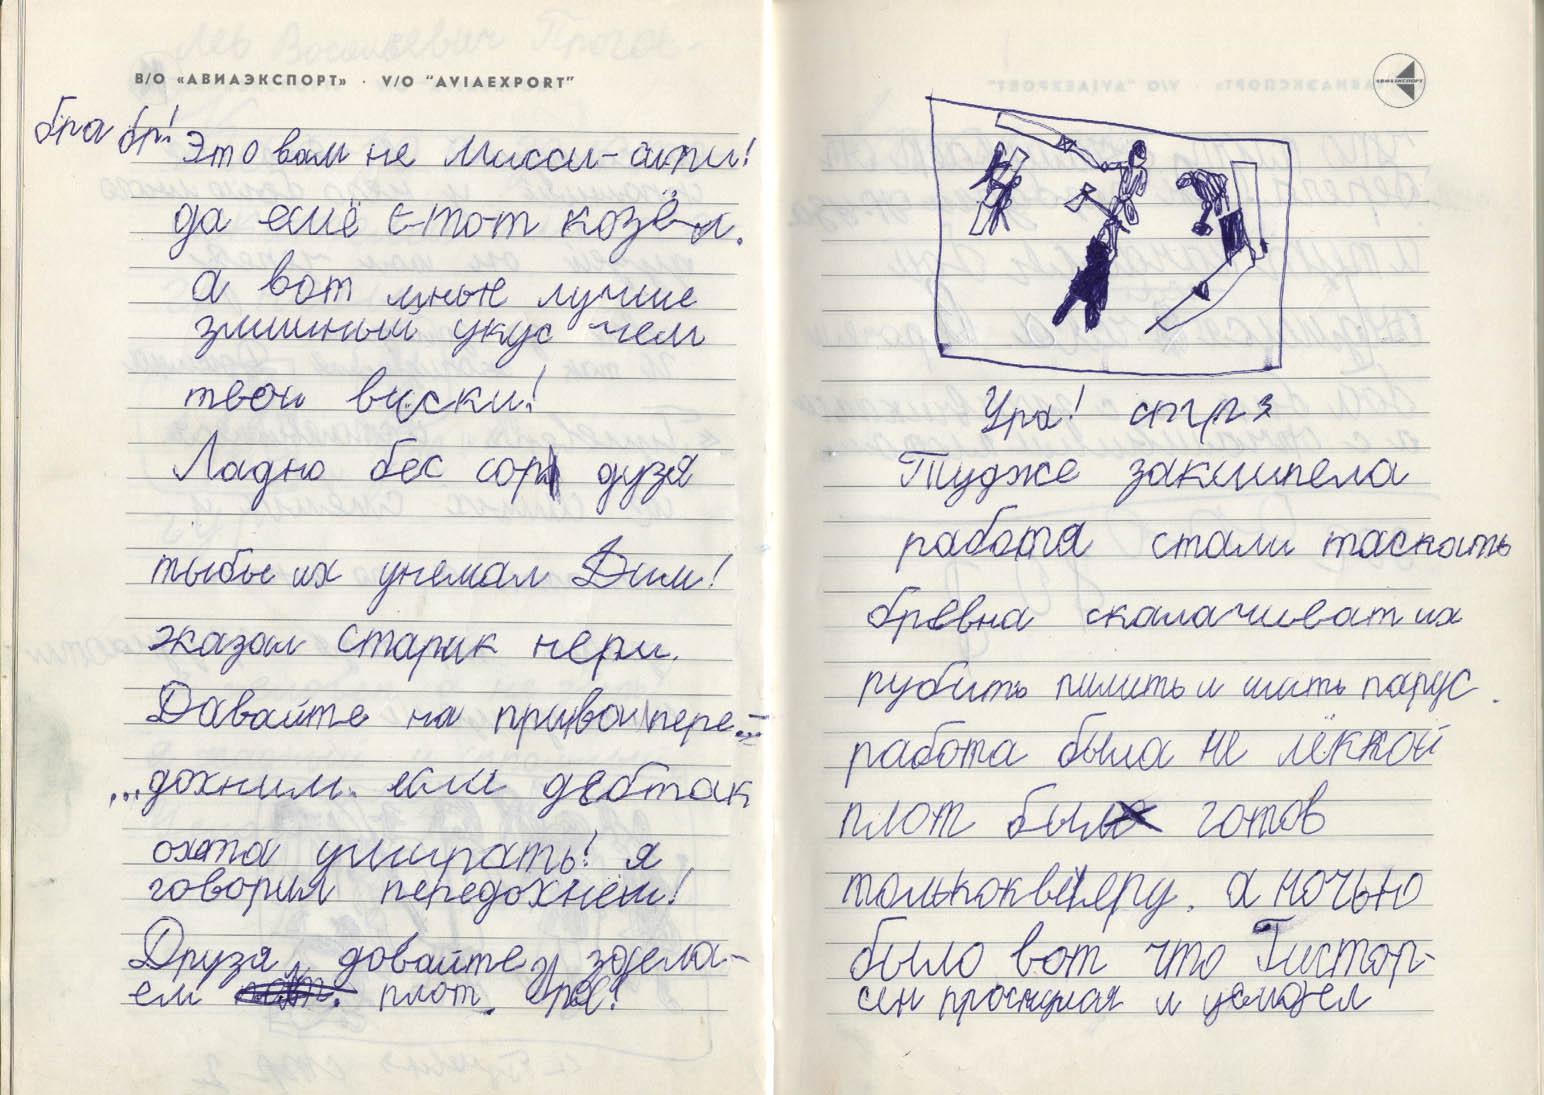 В/О «АВИАЭКСПОРТ» · V/O "AVIAEXPORT"
бра бр! Это вам не Мисси-сипи!
да есчё етот козёл.
а вот мнье лучше
змиинный укус чем
твои виски!
Ладно бес сор дузя
тыбы их унемал Дим!
жазал Старик нери.
Давайте на приваи пере...
...дохним. если дебтак
охота умирать! я
говорил передохнём!
Друзя, довайте здела-
ем плот. Ура!
АВИАЭКСПОРТ
Ура! стр з
Тудже закипела
работа стали таскать
бревна скалачиват их
рубить пилить и шить парус.
работа была не лёккой
плот был готов
толькоквечеру. а ночью
было вот что Гистор-
сен проснулся и увидел